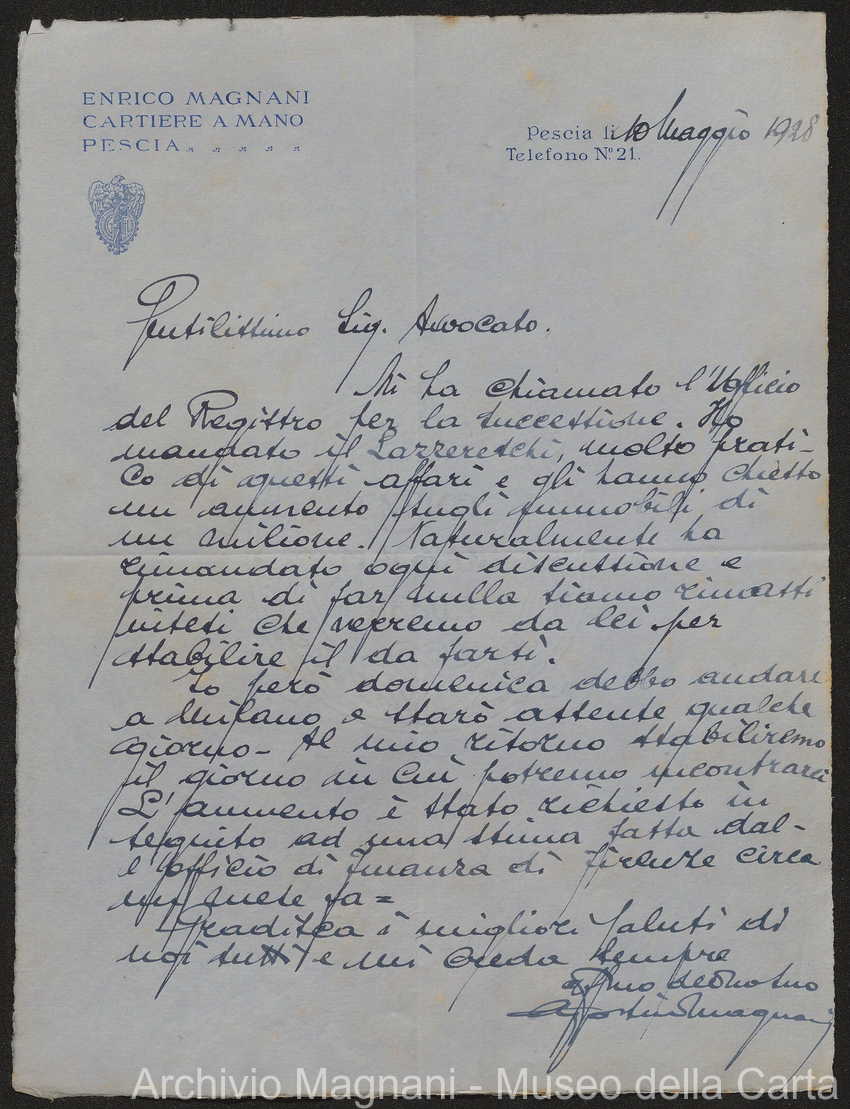 ENRICO MAGNANI
CARTIERE A MANO
PESCIA
Pescia li 10 Maggio 1928
Telefono N.º 21.
Gentilissimo Sig. Avvocato.
Mi ha chiamato l'Ufficio
del Registro per la successione. Ho
mandato il Lazzereschi, molto prati-
co di questi affari e gli hanno chiesto
un aumento sugli immobili di
un milione. Naturalmente ha
rimandato ogni discussione e
prima di far nulla siamo rimasti
intesi che verremo da lei per
stabilire il da farsi.
Io però domenica debbo andare
a Milano e starò assente qualche
giorno - Al mio ritorno stabiliremo
il giorno in cui potremo incontrarci
L'aumento è stato richiesto in
seguito ad una stima fatta dal-
l'Ufficio di finanza di Firenze circa
un mese fa =
Gradisca i migliori saluti di
noi tutti e mi creda sempre
Magnani
Archivio Magnani - Museo della Carta